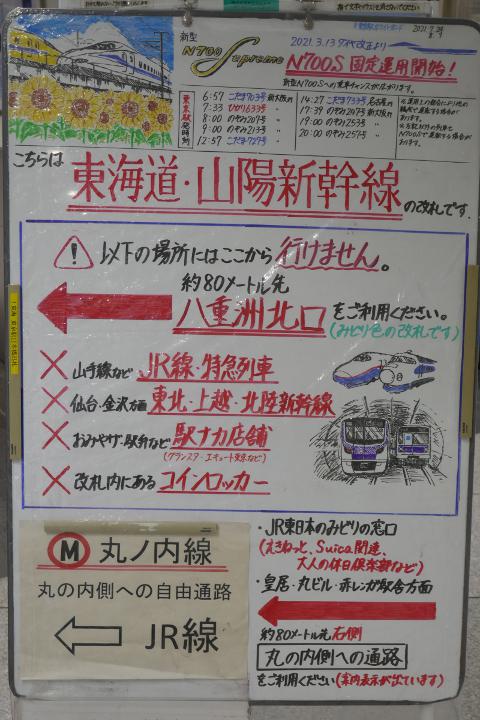 2021.7.24
新型 N700 Supreme
2021.3.13 ダイヤ改正より
N700S 固定運用開始！
新型N700Sへの乗車チャンスが広がります。
東京駅発時刻
6:57 こだま703号 新大阪行
7:33 ひかり633号 〃
8:00 のぞみ207号 〃
9:00 のぞみ213号 〃
12:57 こだま727号 〃
14:27 こだま733号 名古屋行
17:39 のぞみ247号 新大阪行
19:00 のぞみ253号 〃
20:00 のぞみ257号 〃
こちらは
東海道・山陽新幹線
の改札です。
以下の場所にはここから行けません。
約80メートル先
八重洲北口をご利用ください。
(みどり色の改札です)
山手線など JR線・特急列車
仙台・金沢方面 東北・上越・北陸新幹線
おみやげ・駅弁など 駅ナカ店舗
(グランスタ・エキュート東京など)
改札内にある コインロッカー
M 丸ノ内線
丸の内側への自由通路
JR線
・JR東日本のみどりの窓口
(えきねっと、Suica関連、
大人の休日倶楽部など)
・皇居・丸ビル・赤レンガ駅舎方面
約80メートル先右側
丸の内側への通路
をご利用ください(案内表示が出ています)